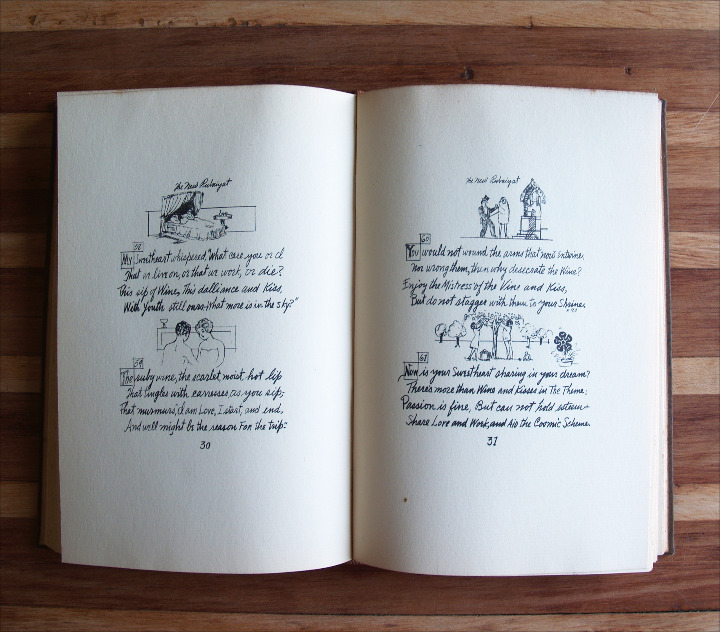 The New Rubaiyat
Love
58
My Sweetheart whispered, "What care you or I
That we live on, or that we work, or die?
This sip of Wine, This dalliance and Kiss,
With Youth still ours—What more is in the sky?"
59
The ruby wine, the scarlet, moist, hot lip
That tingles with caresses, as you sip;
That murmurs, I am Love, I start, and end,
And well might be the reason For the trip."
30
The New Rubaiyat
60
You would not wound the arms that now entwine,
nor wrong them, then why desecrate the Wine?
Enjoy the Mistress of the Vine and Kiss,
But do not stagger with them to your Shrine.
61
Now is your Sweetheart sharing in your dream?
There's more than Wine and Kisses in The Theme;
Passion is fine, But can not hold esteem—
Share Love and Work, and Aid the Cosmic Scheme.
31